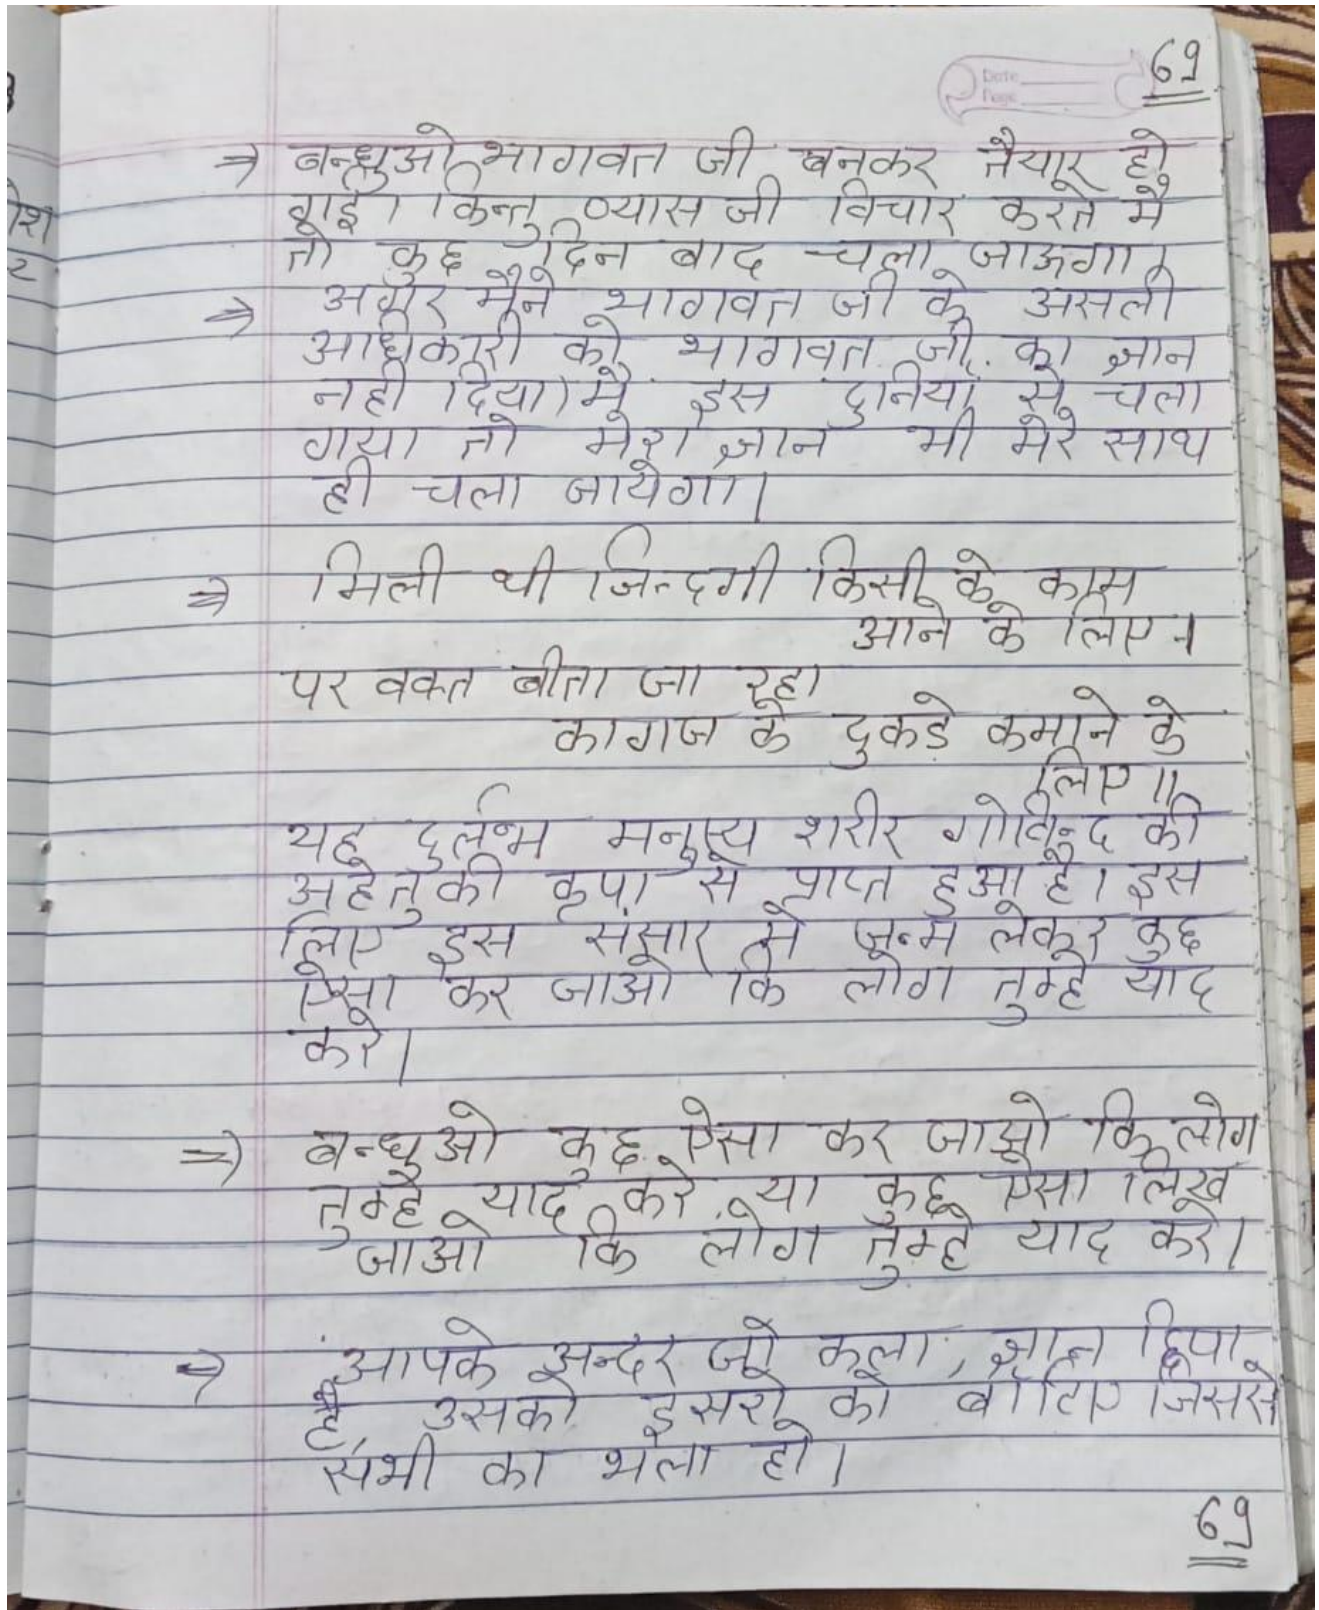 69
Date
Page
⇒ बन्धुओ भागवत जी बनकर तैयार हो
गई। किन्तु व्यास जी विचार करते मै
तो कुछ दिन बाद चला जाऊगा।
⇒ अगर मैने भागवत जी के असली
अधिकारी को भागवत जी का ज्ञान
नही दिया। मै इस दुनिया से चला
गया तो मेरा ज्ञान भी मेरे साथ
ही चला जायेगा।
⇒ मिली थी जिन्दगी किसी के काम
आने के लिए।
पर वक्त बीता जा रहा
कागज के टुकडे कमाने के
लिए॥
यह दुर्लभ मनुष्य शरीर गोविन्द की
अहेतुकी कृपा से प्राप्त हुआ है। इस
लिए इस संसार मे जन्म लेकर कुछ
ऐसा कर जाओ कि लोग तुम्हे याद
करे।
⇒ बन्धुओ कुछ ऐसा कर जाओ कि लोग
तुम्हे याद करे या कुछ ऐसा लिख
जाओ कि लोग तुम्हे याद करे।
⇒ आपके अन्दर जो कला, ज्ञान छिपा
है, उसको दुसरो को बाँटिए जिससे
सभी का भला हो।
69